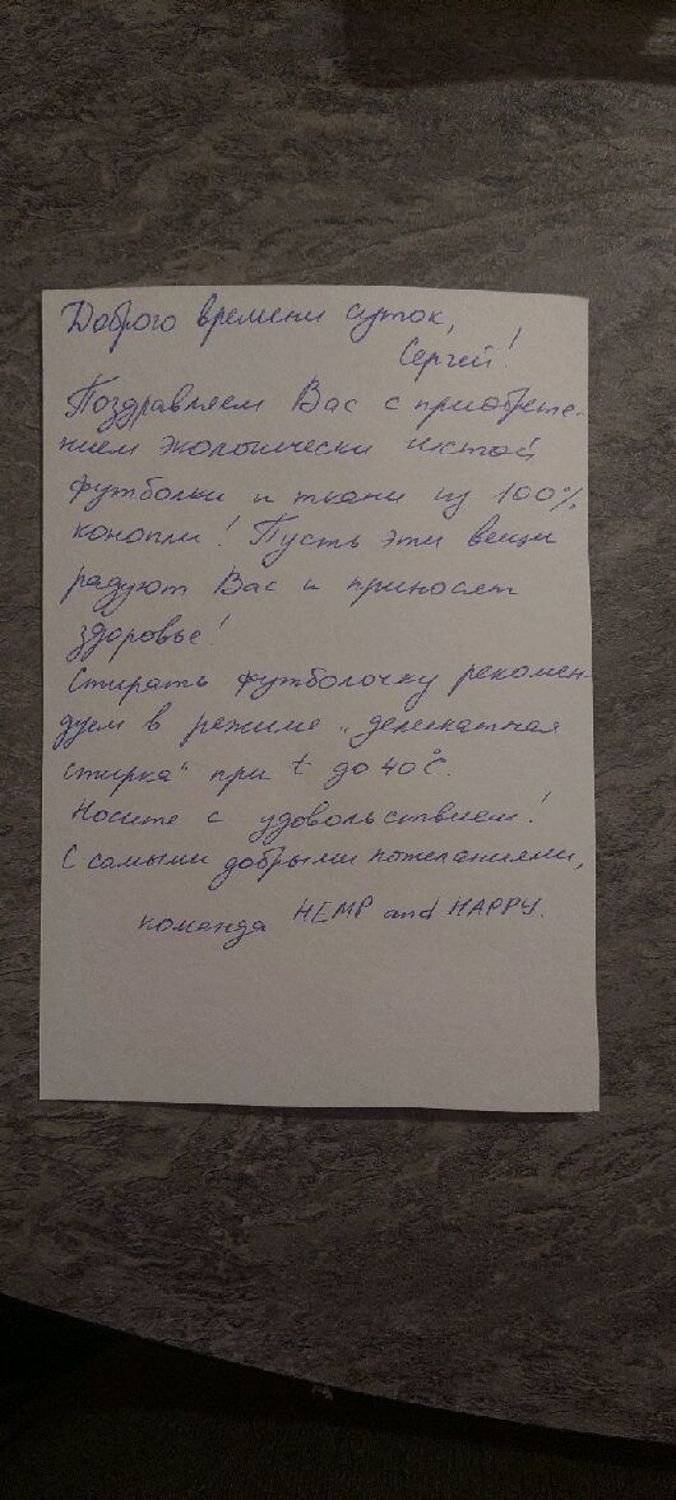 Доброго времени суток,
Сергей!
Поздравляем Вас с приобрете-
нием экологически чистой
футболки и ткани из 100%
конопли! Пусть эти вещи
радуют Вас и приносят
здоровье!
Стирать футболочку рекомен-
дуем в режиме „деликатная
стирка" при t до 40°C.
Носите с удовольствием!
С самыми добрыми пожеланиями,
команда HEMP and HAPPY.